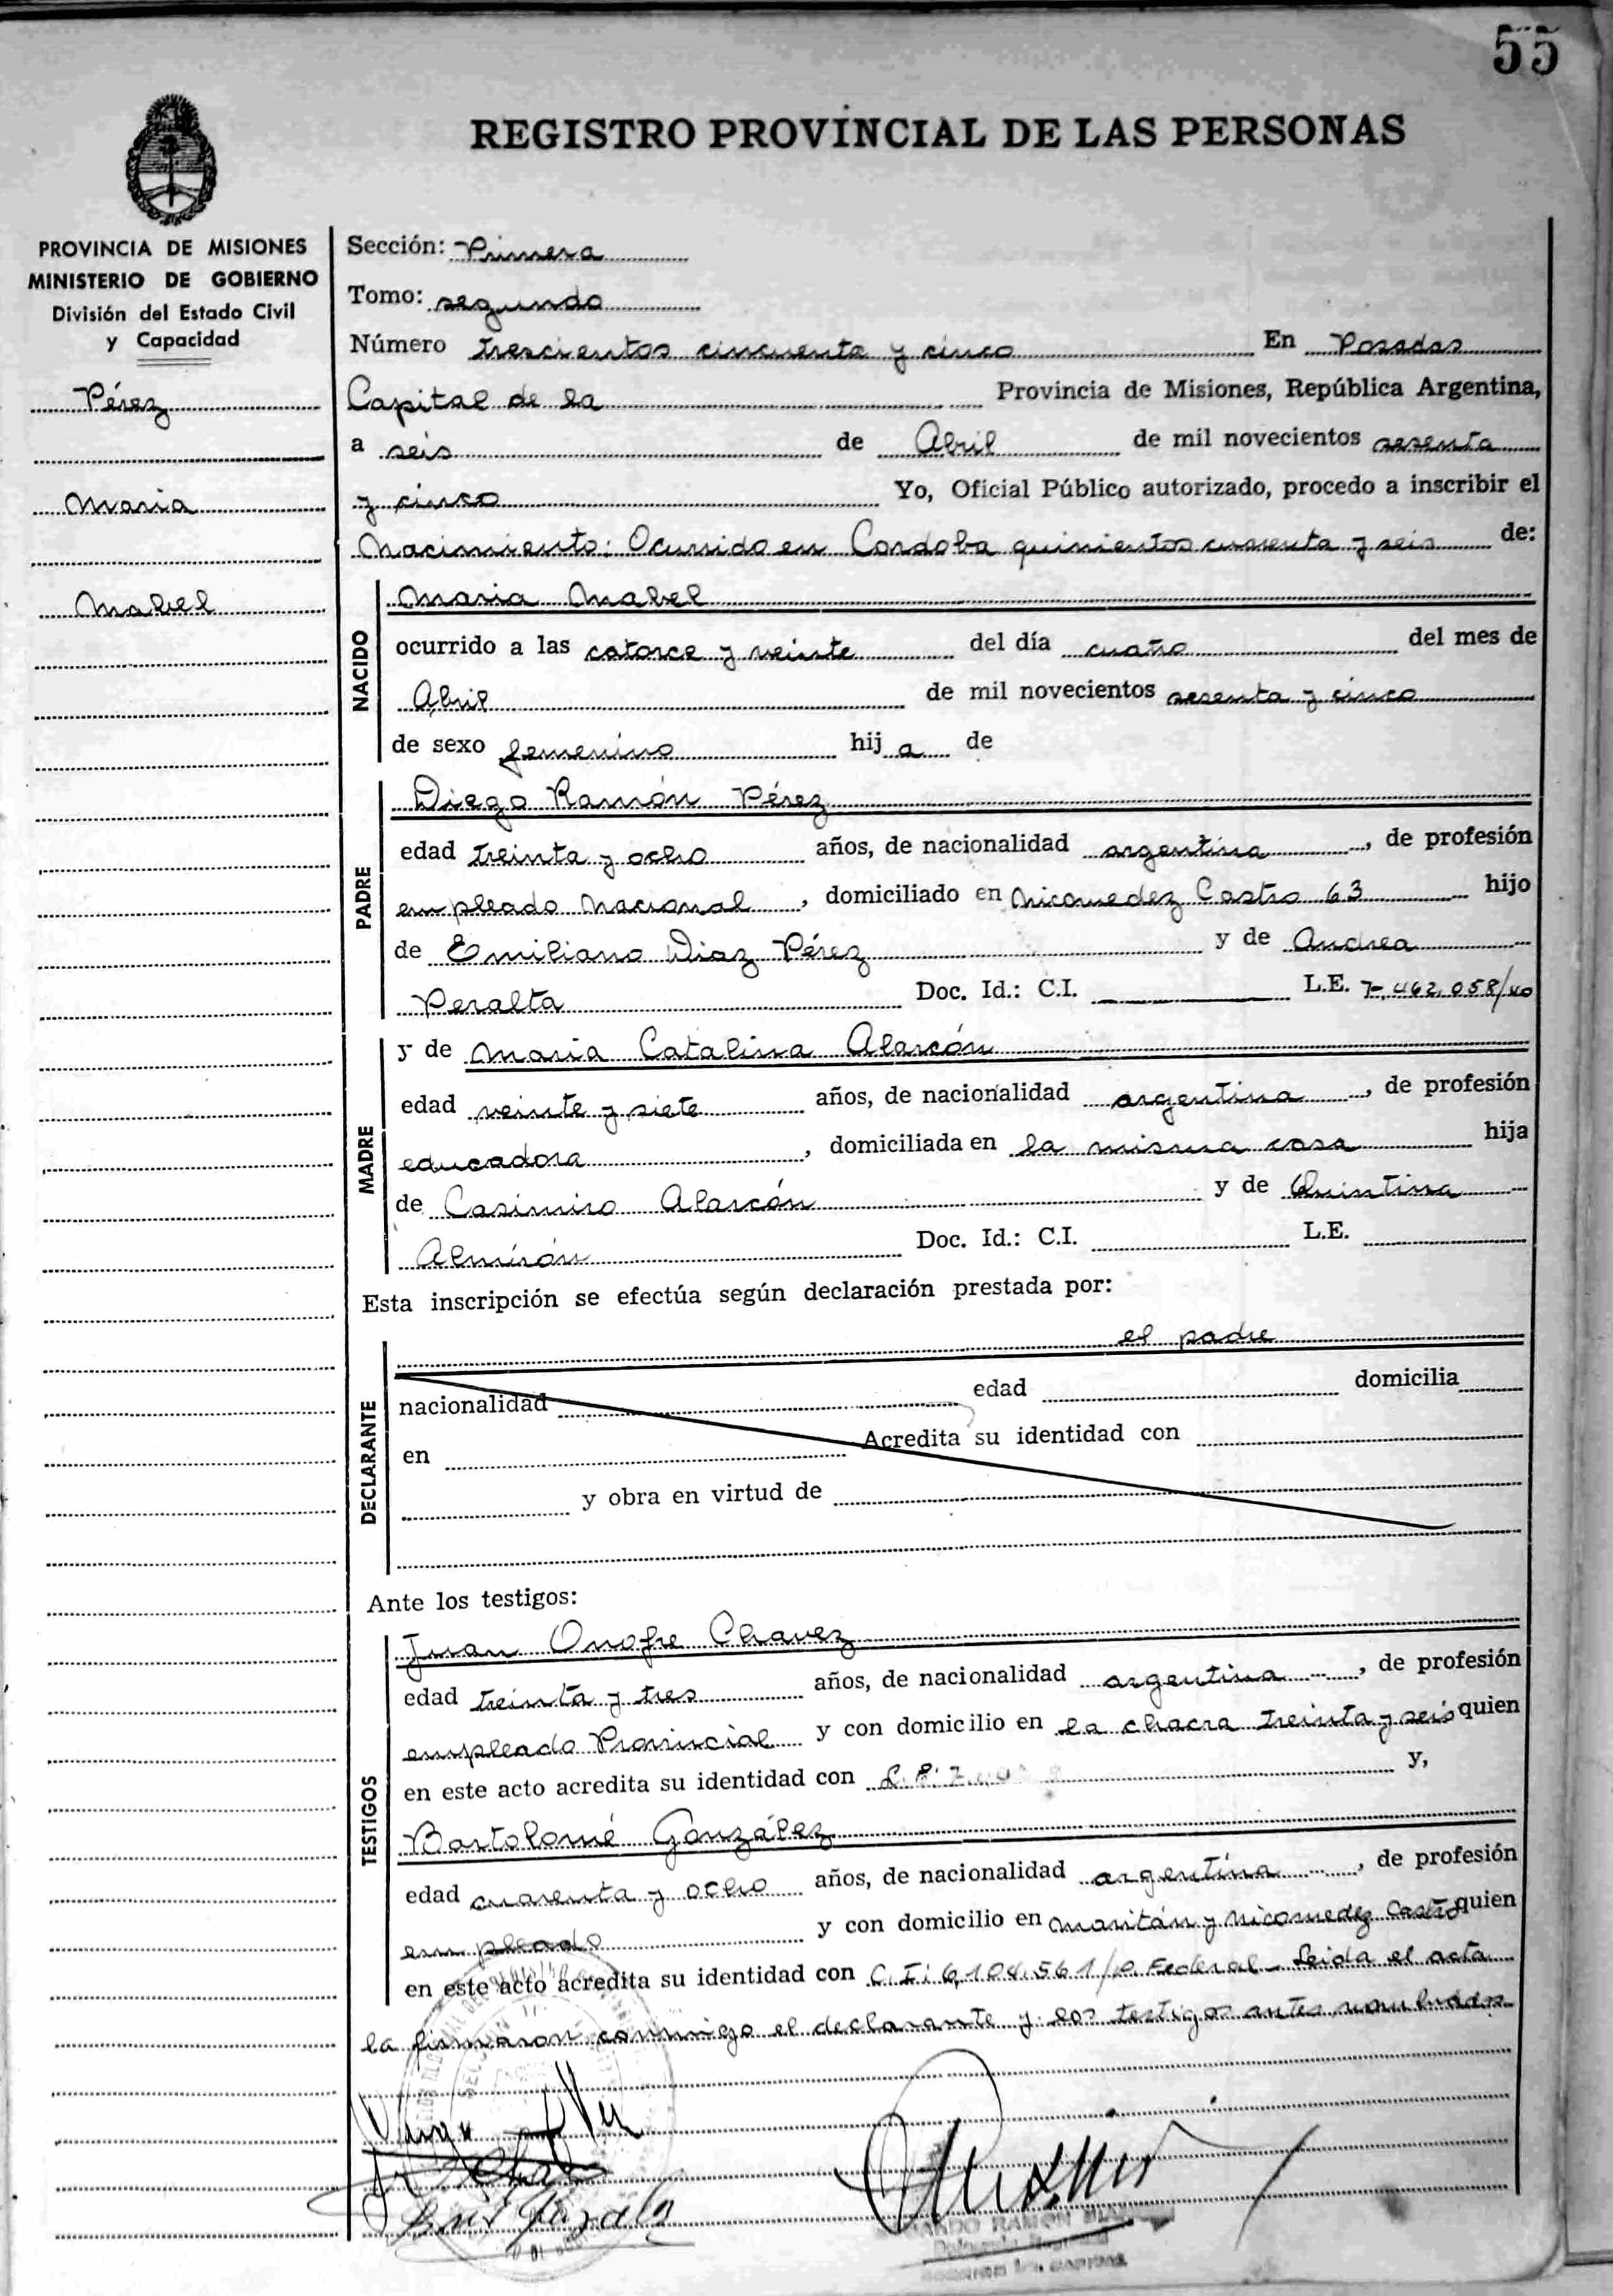 55
REGISTRO PROVINCIAL DE LAS PERSONAS
PROVINCIA DE MISIONES
MINISTERIO DE GOBIERNO
División del Estado Civil
y Capacidad
Pérez
Maria
Mabel
Sección: Primera
Tomo: segundo
Número trescientos cincuenta y cinco En Posadas
Capital de la Provincia de Misiones, República Argentina,
a seis de Abril de mil novecientos sesenta
y cinco Yo, Oficial Público autorizado, procedo a inscribir el
Nacimiento: Ocurrido en Cordoba quinientos cuarenta y seis de:
NACIDO
Maria Mabel
ocurrido a las catorce y veinte del día cuatro del mes de
Abril de mil novecientos sesenta y cinco
de sexo femenino hij a de
PADRE
Diego Ramón Pérez
edad treinta y ocho años, de nacionalidad argentina, de profesión
empleado Nacional, domiciliado en Nicomedez Castro 63 hijo
de Emiliano Diaz Pérez y de Andrea
Peralta Doc. Id.: C.I. L.E. 7.462.058/
MADRE
y de Maria Catalina Alarcón
edad veinte y siete años, de nacionalidad argentina, de profesión
educadora, domiciliada en la misma casa hija
de Casimiro Alarcón y de Quintina
Almirón Doc. Id.: C.I. L.E.
Esta inscripción se efectúa según declaración prestada por:
el padre
DECLARANTE
nacionalidad edad domicilia
en Acredita su identidad con
y obra en virtud de
Ante los testigos:
TESTIGOS
Juan Onofre Chavez
edad treinta y tres años, de nacionalidad argentina, de profesión
empleado Provincial y con domicilio en la chacra treinta y seis quien
en este acto acredita su identidad con y,
Bartolomé González
edad cuarenta y ocho años, de nacionalidad argentina, de profesión
empleado y con domicilio en Maritán y Nicomedez Castro quien
en este acto acredita su identidad con C.I: 6,104.561/P. Federal - Leida el acta
la firmaron conmigo el declarante y los testigos antes nombrados
RAMON